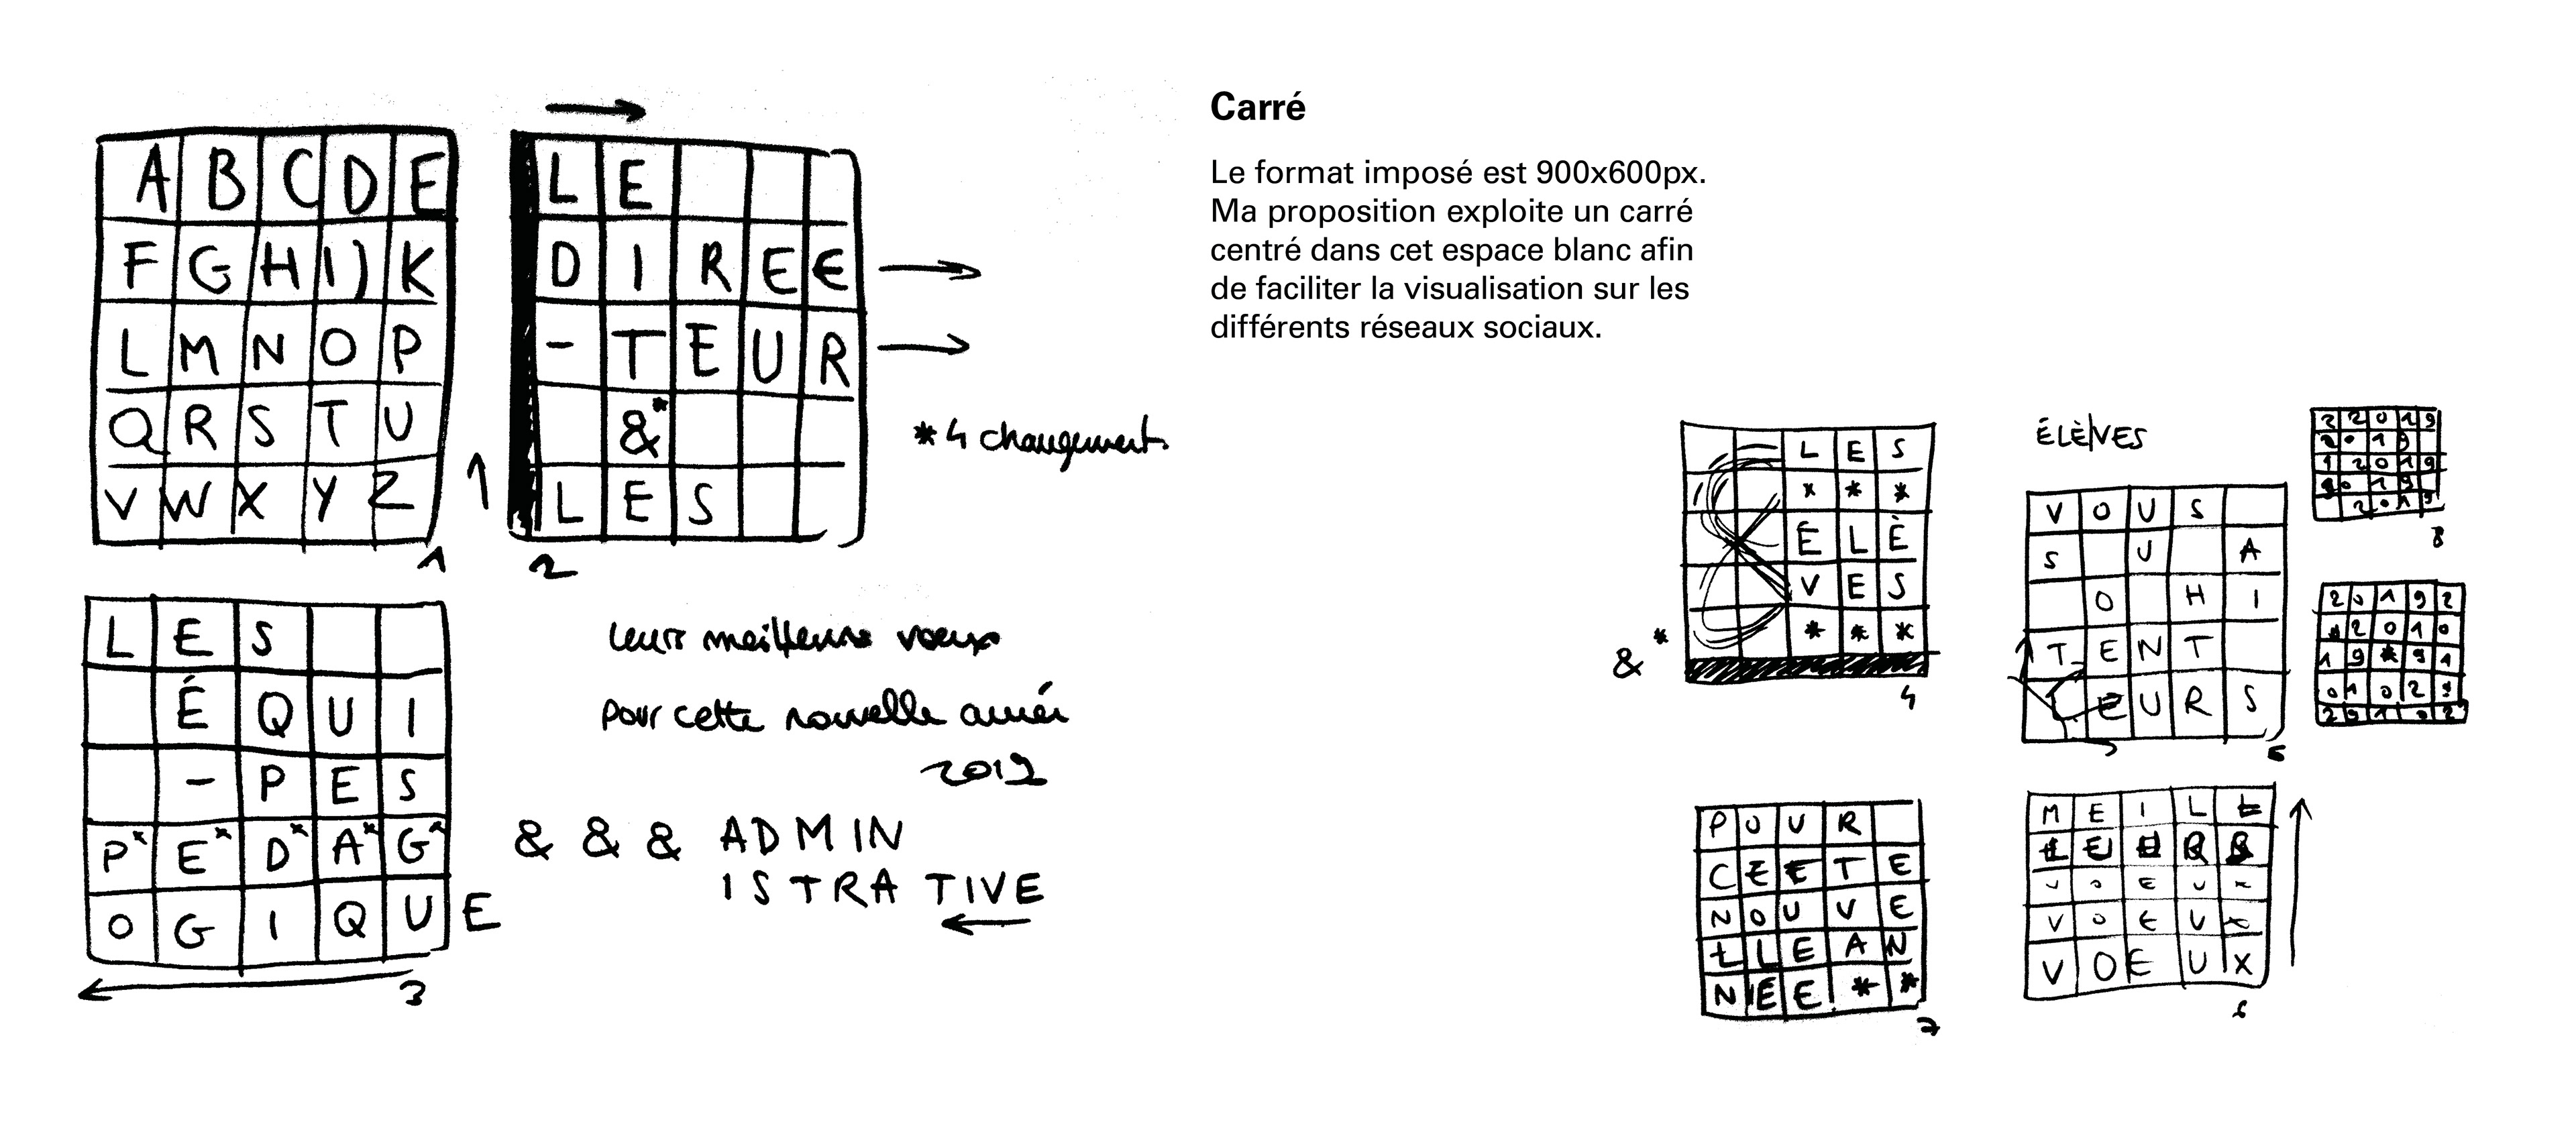 A B C D E
F G H I J K
L M N O P
Q R S T U
V W X Y Z
1
L E
D I R E €
- T E U R
&*
L E S
2
* 4 changement
L E S
É Q U I
- P E S
P* E* D* A* G*
O G I Q U E
3
leurs meilleurs vœux
pour cette nouvelle année
2019
& & & ADMIN
ISTRATIVE
Carré
Le format imposé est 900x600px.
Ma proposition exploite un carré
centré dans cet espace blanc afin
de faciliter la visualisation sur les
différents réseaux sociaux.
L E S
* * *
E L È
V E S
* * *
& *
4
ÉLÈ/VES
V O U S
S U A
O H I
T E N T
E U R S
5
2 2 0 1 9
2 0 1 9
1 2 0 1 9
9 0 1 9
2 0 1 9
8
2 0 1 9 2
* 2 0 1 0
1 9 * 9 1
0 1 0 2 9
2 9 1 0 2
P O U R
C E E T E
N O U V E
L L E A N
N E E * *
7
M E I L L
E U R S
V O E U X
V O E U X
V O E U X
6